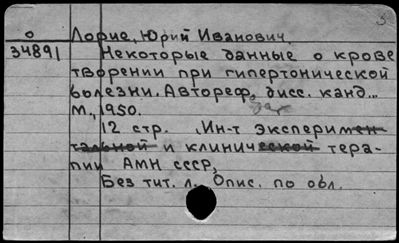 О Лорие, Юрий Иванович
34891 Некоторые данные о крове
творении при гипертонической
болезни. Автореф. дисс. канд...
М., 1950.
12 стр. Ин-т эксперимен-
тальной и клинической тера-
пии АМН СССР,
Без тит. л. Опис. по обл.